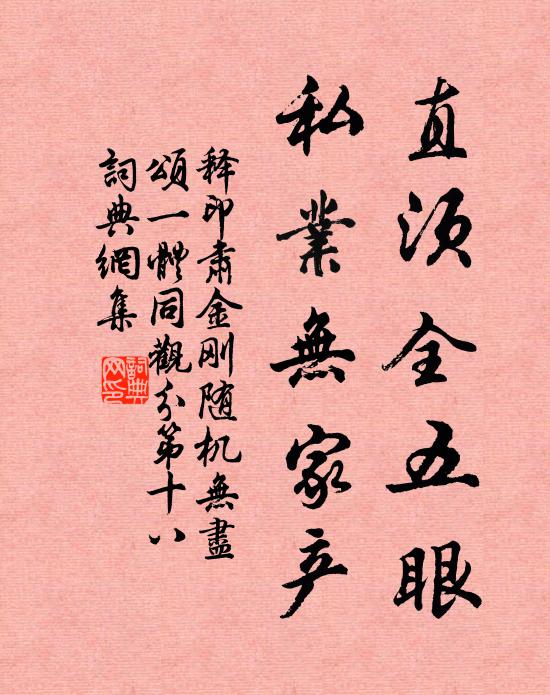 直须全五眼
私業無家产
释印肃金刚随机無盡
頌一體同觀分第十八
詞典網集
詞典網印